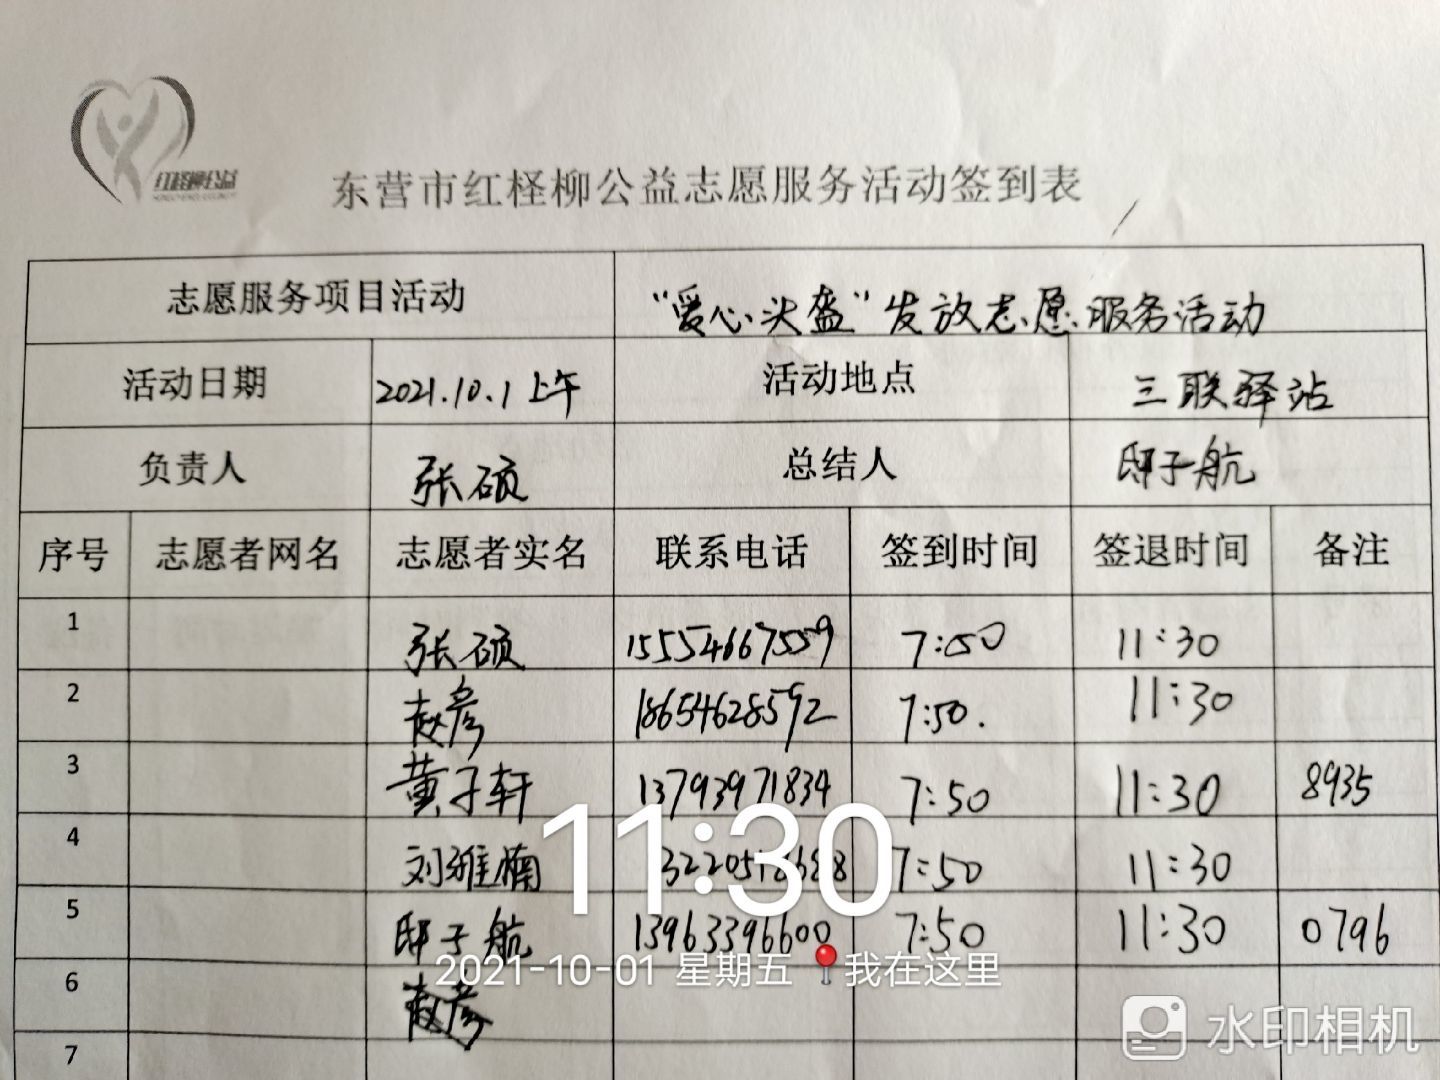 红柽柳公益
东营市红柽柳公益志愿服务活动签到表
志愿服务项目活动 “爱心头盔”发放志愿服务活动
活动日期 2021.10.1上午 活动地点 三联驿站
负责人 张硕 总结人 邸子航
序号 志愿者网名 志愿者实名 联系电话 签到时间 签退时间 备注
1 张硕 15554667559 7:50 11:30
2 赵彦 18654628592 7:50. 11:30
3 黄子轩 13793971834 7:50 11:30 8935
4 刘雅楠 7:50 11:30
5 邸子航 13963396600 7:50 11:30 0796
6
7
11:30
2021-10-01 星期五 我在这里
水印相机